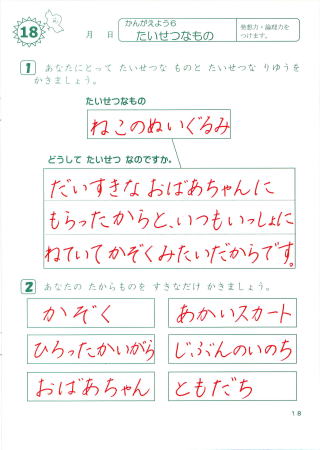 18
月 日
かんがえよう6
たいせつなもの
発想力・論理力を
つけます。
1 あなたにとって たいせつな ものと たいせつな りゆうを
かきましょう。
たいせつなもの
ねこのぬいぐるみ
どうして たいせつ なのですか。
だいすきな おばあちゃんに
もらったからと、いつもいっしょに
ねていてかぞくみたいだからです。
2 あなたの たからものを すきなだけ かきましょう。
かぞく
あかいスカート
ひろったかいがら
じぶんのいのち
おばあちゃん
ともだち
18